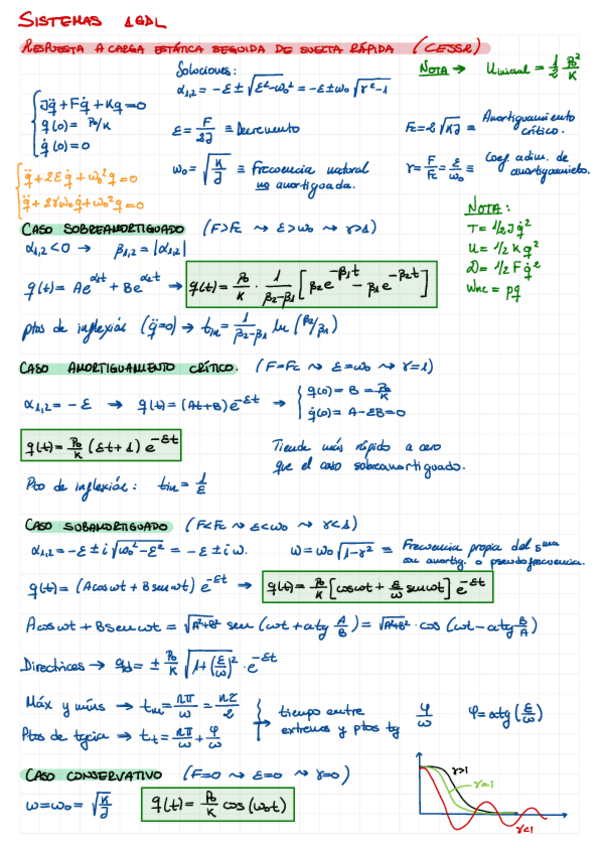 SISTEMAS 1GDL
RESPUESTA A CARGA ESTÁTICA SEGUIDA DE SUELTA RÁPIDA (CESSR)
Soluciones:
NOTA → U inicial = 1/2 P₀²/K
α₁,₂ = -ε ± √(ε²-ω₀²) = -ε ± ω₀ √(r²-1)
Jq̈ + Fq̇ + Kq = 0
q(0) = P₀/K
q̇(0) = 0
ε = F/2J ≡ Decremento
Fc = 2√(KJ) = Amortiguamiento crítico.
ω₀ = √(K/J) ≡ Frecuencia natural no amortiguada.
r = F/Fc = ε/ω₀ ≡ Coef. adim. de amortiguamiento.
q̈ + 2εq̇ + ω₀²q = 0
q̈ + 2rω₀q̇ + ω₀²q = 0
NOTA:
T = 1/2 Jq̇²
U = 1/2 Kq²
D = 1/2 Fq̇²
Wnc = pq
CASO SOBREAMORTIGUADO (F>Fc ⤳ ε>ω₀ ⤳ r>1)
α₁,₂ < 0 → β₁,₂ = |α₁,₂|
q(t) = Ae^α₁t + Be^α₂t → q(t) = P₀/K · 1/(β₂-β₁) [β₂e^-β₁t - β₁e^-β₂t]
ptos de inflexión (q̈=0) → tin = 1/(β₂-β₁) ln (β₂/β₁)
CASO AMORTIGUAMIENTO CRÍTICO. (F=Fc ⤳ ε=ω₀ ⤳ r=1)
α₁,₂ = -ε → q(t) = (At+B)e^-εt → { q(0) = B = P₀/K
q̇(0) = A-εB = 0
q(t) = P₀/K (εt+1) e^-εt
Tiende más rápido a cero
que el caso sobreamortiguado.
Pto de inflexión: tin = 1/ε
CASO SUBAMORTIGUADO (F<Fc ⤳ ε<ω₀ ⤳ r<1)
α₁,₂ = -ε ± i√(ω₀²-ε²) = -ε ± iω. ω = ω₀√(1-r²) ≡ Frecuencia propia del sma
con amortig. o pseudofrecuencia.
q(t) = (Acosωt + Bsenωt) e^-εt → q(t) = P₀/K [cosωt + ε/ω senωt] e^-εt
Acosωt + Bsenωt = √(A²+B²) sen (ωt + atg A/B) = √(A²+B²) · cos (ωt - atg B/A)
Directrices → qd = ± P₀/K √(1+(ε/ω)²) · e^-εt
Máx y míns → tm = nπ/ω = nτ/2
Ptos de tgcia → tt = nπ/ω + φ/ω
tiempo entre
extremos y ptos tg
φ/ω φ = atg (ε/ω)
CASO CONSERVATIVO (F=0 ⤳ ε=0 ⤳ r=0)
ω = ω₀ = √(K/J) q(t) = P₀/K cos(ω₀t)
r>1
r=1
r<1